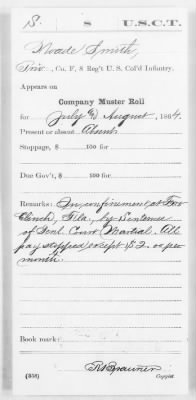 S. 8 U.S.C.T.
Noade Smith,
Priv., Co. F, 8 Reg't U. S. Col'd Infantry.
Appears on
Company Muster Roll
for July & August, 1864.
Present or absent Absent
Stoppage, $ 100 for
Due Gov't, $ 100 for
Remarks: In confinement at Fort
Clinch, Fla., by Sentence
of Genl Court Martial. All
pay stopped except $2.00 per
month.
Book mark:
R Brauner
(358) Copyist.